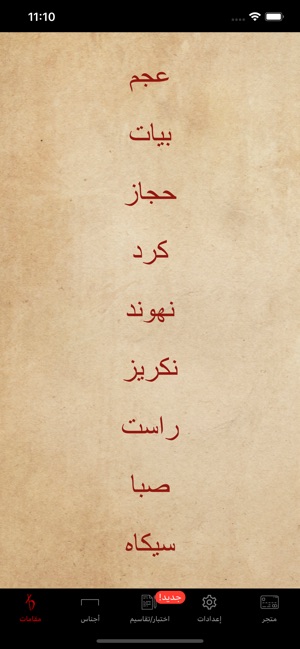 11:10
عجم
بيات
حجاز
كرد
نهوند
نكريز
راست
صبا
سيكاه
جديد!
متجر
إعدادات
اختبار/تقاسيم
أجناس
مقامات